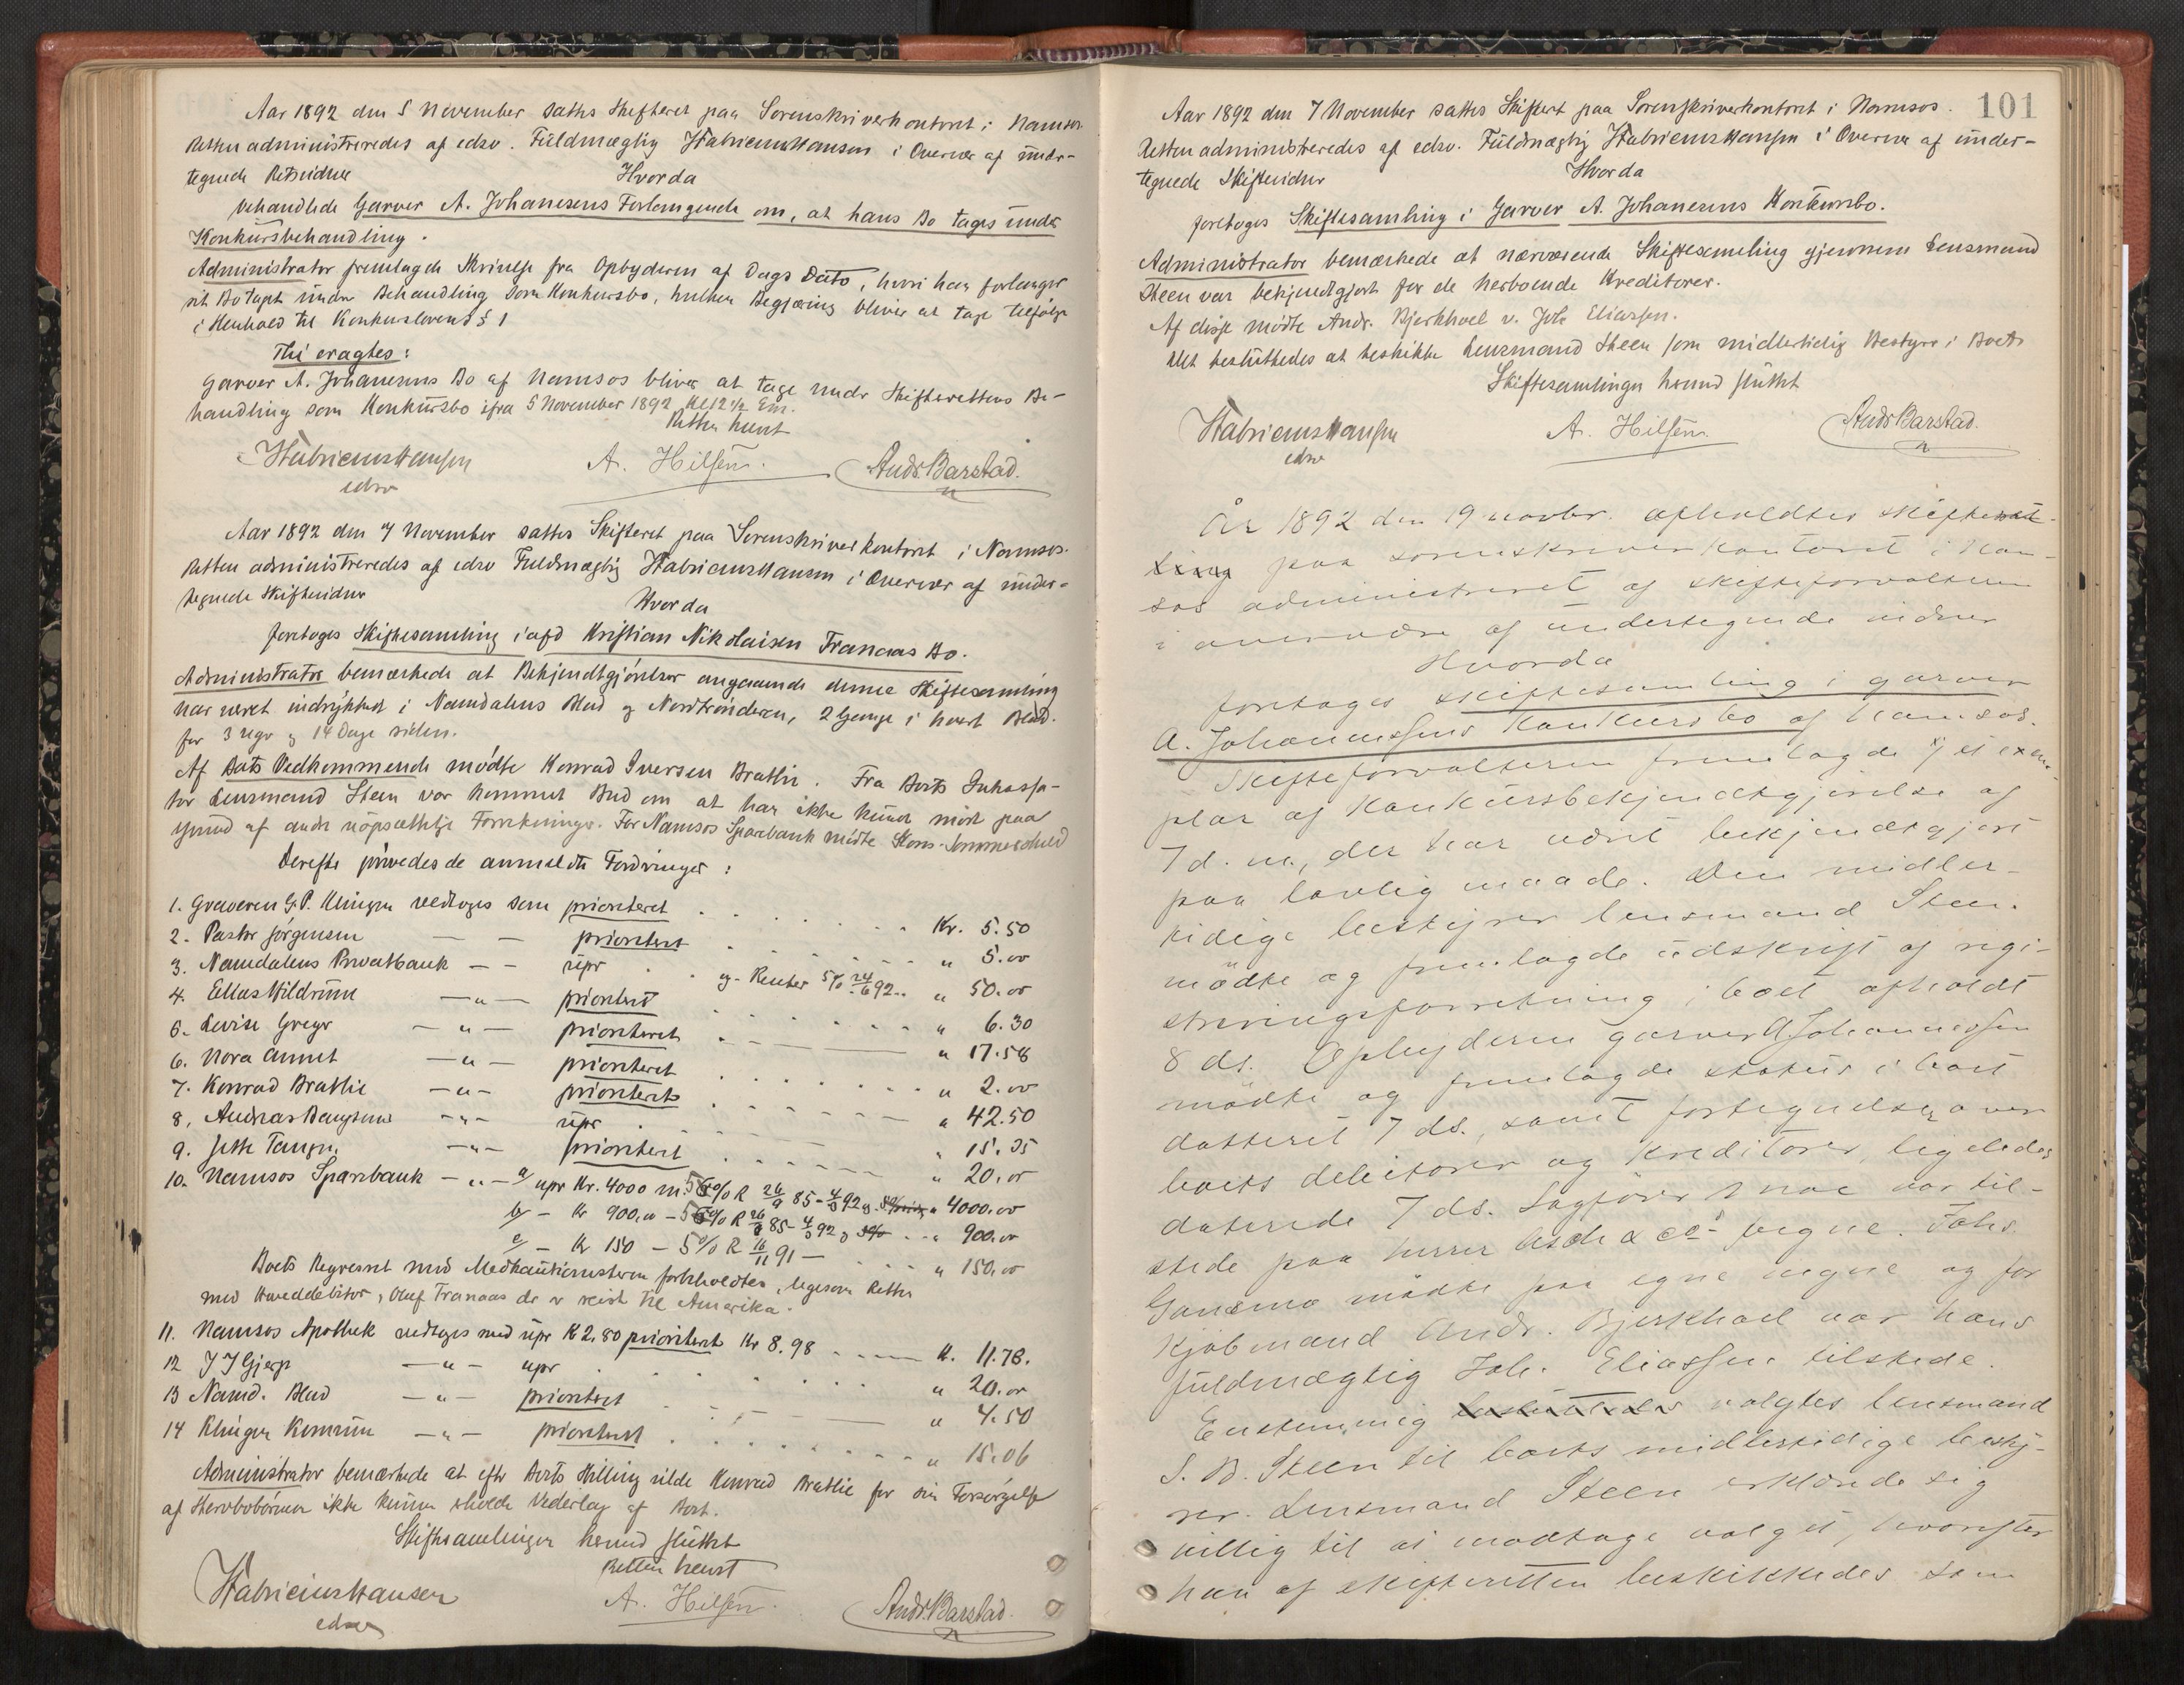 Aar 1892 den 5 November sattes Skifteret paa Sorenskriverkontoret i Namsos
Retten administreredes af edsv. Fuldmægtig Fabricius Hansen i Overvær af under-
tegnede Retsvidner
Hvorda
behandlede Garver A. Johanesens Forlangende om, at hans Bo tages under
Konkursbehandling.
Administrator fremlagde Skrivelse fra Opbyderen af Dags Dato, hvori han forlanger
sit Bo taget under Behandling som Konkursbo, hvilken Begjæring bliver at tage tilfølge
i Henhold til Konkurslovens § 1
Thi eragtes:
Garver A. Johanesens Bo af Namsos bliver at tage under Skifterettens Be-
handling som Konkursbo ifra 5 November 1892 Kl 12 1/2 Em.
Retten hævt
Fabricius Hansen
edsv
A. Hilsen.
Andr. Barstad.
Aar 1892 den 7 November sattes Skifteret paa Sorenskriverkontoret i Namsos.
Retten administreredes af edsv Fuldmægtig Fabricius Hansen i Overvær af under-
tegnede Skiftevidner
Hvorda
foretoges Skiftesamling i afd Kristian Nikolaisen Franaas Bo.
Administrator bemærkede at Bekjendtgjörelser angaaende denne Skiftesamling
har været indrykket i Namdalens Blad og Nordtrönderen, 2 Gange i hvert Blad.
for 3 Uger og 14 Dage siden.
Af Bots Vedkommende mödte Konrad Iversen Bratlie. Fra Boets Inkassa-
tor Lensmand Steen var kommet Bud om at han ikke kunde möde paa
Grund af andre uopsættelige Forretninger. For Namsos Sparebank mödte Kons. Sommerschield
Derefter prövedes de anmeldte Fordringer:
1. Graveren G.P. Klingen vedtoges som prioriteret . . . Kr. 5.50
2. Pastor Jörgensen — — prioritert . . . " 5.00
3. Namdalens Privatbank — — upr . . og Renter 5% 24/6 92.. " 50.00
4. Ellas Hildrum — " — prioritert . . . " 6.30
5. Levise Greger — " — prioriteret . — " 17.58
6. Nora Annet — " — prioriteret . . . " 2.00
7. Konrad Bratlie — " — prioriteret . . . " 42.50
8. Andreas — " — upr . . . " 15.35
9. Jette — " — prioritert . . . " 20.00
10. Namsos Sparebank — " — a/ upr Kr. 4000 m. 5% R 26/9 85 - 4/3 92 og " 4000.00
b/ — Kr 900,00 — 5% R 26/9 85 - 4/3 92 og .. " 900.00
c/ — Kr 150 — 5% R 16/11 91 — . . " 150,00
Boets Regresret mod Medkautionisterne forbeholdtes, ligesom Retten
mod Hoveddebitor, Oluf Franaas der er reist til Amerika.
11. Namsos Apothek vedtoges med upr Kr 2,80 prioriteret Kr 8.98 . . . — K. 11.78.
12 J J Gjerp — " — upr . . . " 20.00
13 Namd. Blad — " — prioritert . . . " 4.50
14 Klingen Kommun — " — prioritert . . . " 15.06
Administrator bemærkede at efter Boets Stilling vilde Konrad Bratlie for sin Forsörgelse
af Stervbobörnene ikke kunne erholde Vederlag af Boet.
Skiftesamlingen hermed sluttet
Retten hævet
Fabricius Hansen
edsv
A. Hilsen.
Andr. Barstad.
101
Aar 1892 den 7 November sattes Skifteret paa Sorenskriverkontoret i Namsos.
Retten administreredes af edsv. Fuldmægtig Fabricius Hansen i Overvær af under-
tegnede Skiftevidner
Hvorda
foretoges Skiftesamling i Garver A. Johanesens Konkursbo.
Administrator bemærkede at nærværende Skiftesamling gjennem Lensmand
Steen var bekjendtgjort for de herboende Kreditorer.
Af disse mödte Andr. Bjerkhoel v. Joh Eliassen.
Det besluttedes at beskikke Lensmand Steen som midlertidig Bestyrer i Boet.
Skiftesamlingen hermed sluttet
Fabricius Hansen
edsv
A. Hilsen.
Andr. Barstad.
År 1892 den 19 novbr. afholdtes skifteret
paa sorenskriverkontoret i Nam-
sos administreret af skifteforvalteren
i overvære af undertegnede vidner
Hvorda
foretoges skiftesamling i garver
A. Johannessens Konkursbo af Namsos.
Skifteforvalteren fremlagde 1/ et exem-
plar af Konkursbekjendtgjörelse af
7 d. m., der har været bekjendtgjort
paa lovlig maade. Den midler-
tidige bestyrer lensmand Steen
mödte og fremlagde udskrift af regi-
streringsforretning i boet afholdt
8 ds. Opbyderen garver A Johannessen
mödte og fremlagde status i boet
datteret 7 ds., samt fortegnelse over
boets debitorer og kreditorer, ligeledes
daterede 7 ds. Sagförer var til-
stede paa herrer & co's vegne. Johs.
mödte paa egne vegne og for
Kjöbmand Andr. Bjerkhoel var hans
fuldmægtig Joh. Eliassen tilstede.
Enstemmig valgtes lensmand
S. B. Steen til boets midlertidige besty-
rer. Lensmand Steen erklærede sig
villig til at modtage valget, hvorefter
han af skifteretten beskikkedes som